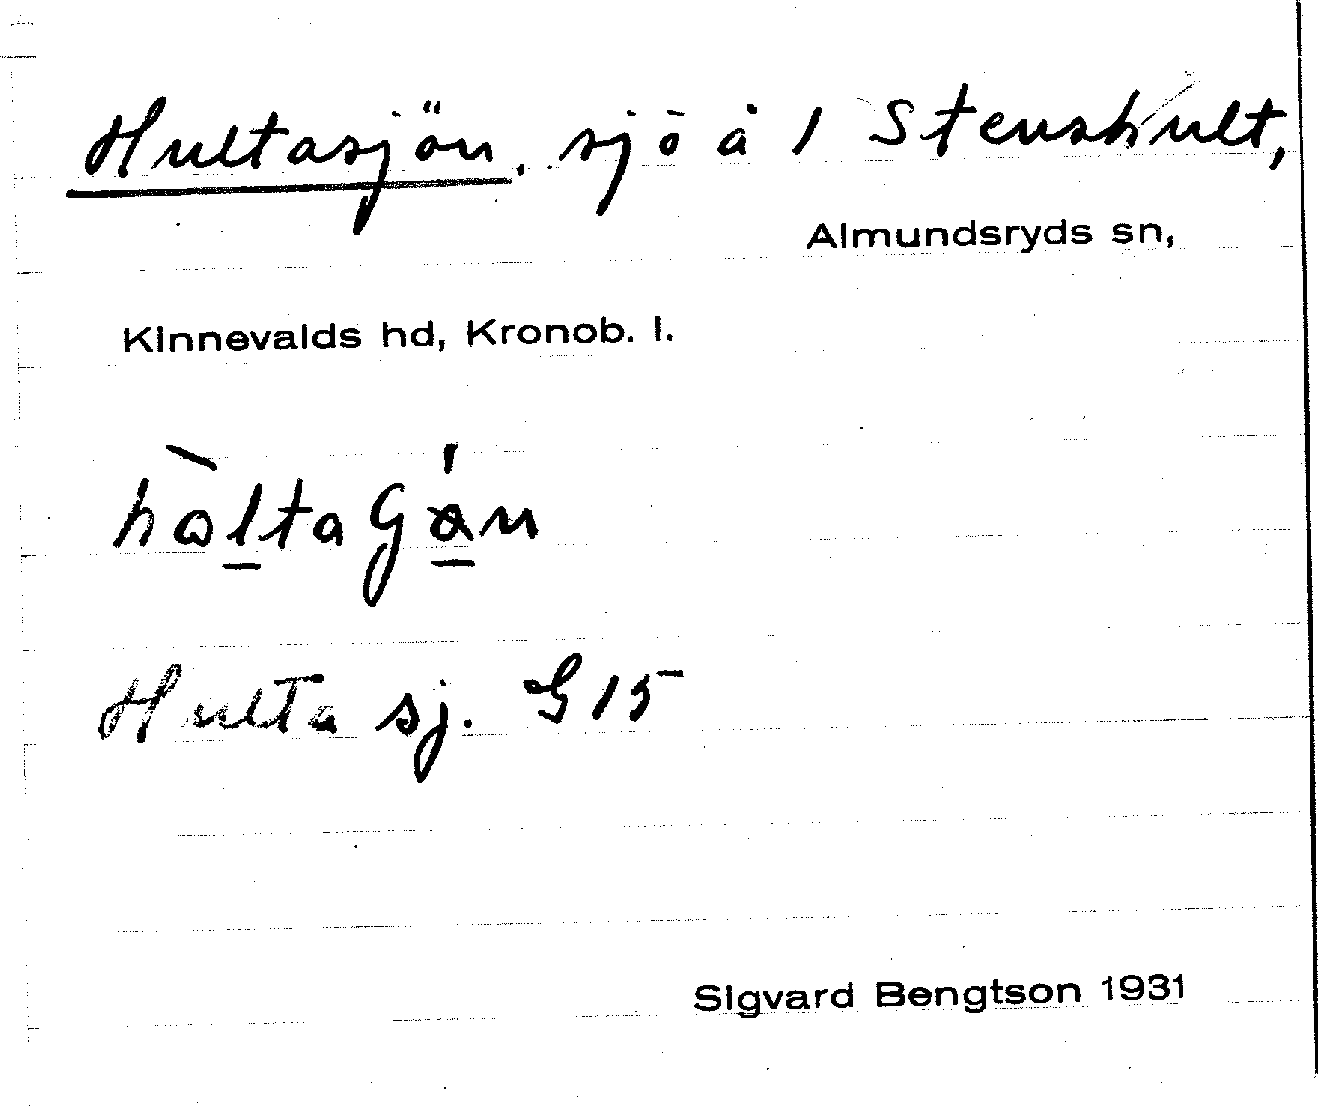 Hultasjön, sjö å 1 Stenshult,
Almundsryds sn,
Kinnevalds hd, Kronob. l.
Hulta sj. G 15
Sigvard Bengtson 1931